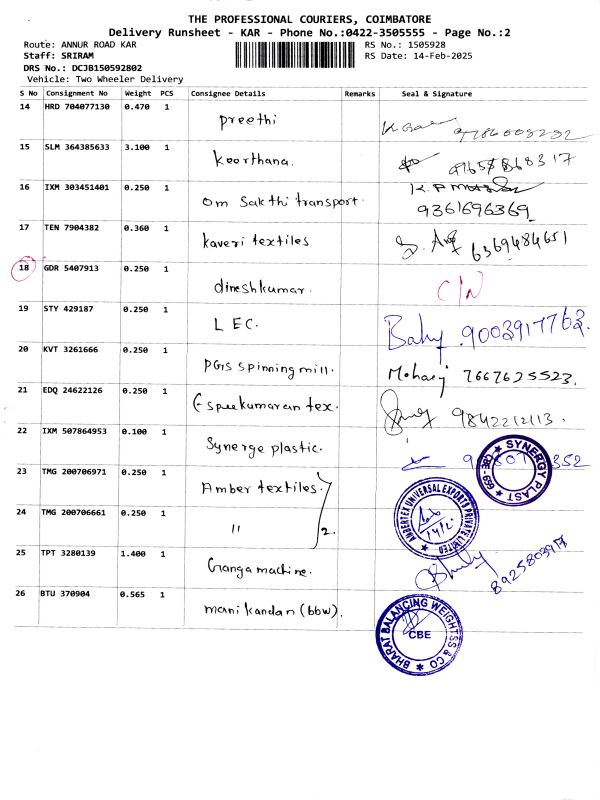 THE PROFESSIONAL COURIERS, COIMBATORE
Delivery Runsheet - KAR - Phone No.:0422-3505555 - Page No.:2
Route: ANNUR ROAD KAR
RS No.: 1505928
Staff: SRIRAM
RS Date: 14-Feb-2025
DRS No.: DCJB150592802
Vehicle: Two Wheeler Delivery
S No Consignment No Weight PCS Consignee Details Remarks Seal & Signature
14 HRD 704077130 0.470 1 preethi
15 SLM 364385633 3.100 1 keerthana.
16 IXM 303451401 0.250 1 om Sakthi transport.
9361696369
17 TEN 7904382 0.360 1 kaveri textiles 6369484651
18 GDR 5407913 0.250 1 dineshkumar. C/N
19 STY 429187 0.250 1 LEC. 9003917763.
20 KVT 3261666 0.250 1 PGS spinning mill. Moharj 7667625523.
21 EDQ 24622126 0.250 1 tex. 9842212113.
22 IXM 507864953 0.100 1 Synerge plastic.
★ SYNERGY PLAST ★ CBE - 669
23 TMG 200706971 0.250 1 Amber textiles. 2.
AMBERTEX UNIVERSAL EXPORTS PRIVATE LIMITED
24 TMG 200706661 0.250 1 "
25 TPT 3280139 1.400 1 Ganga machine. 8925803917
26 BTU 370904 0.565 1 manikandan (bbw).
BHARAT BALANCING WEIGHTSS & CO ★ CBE